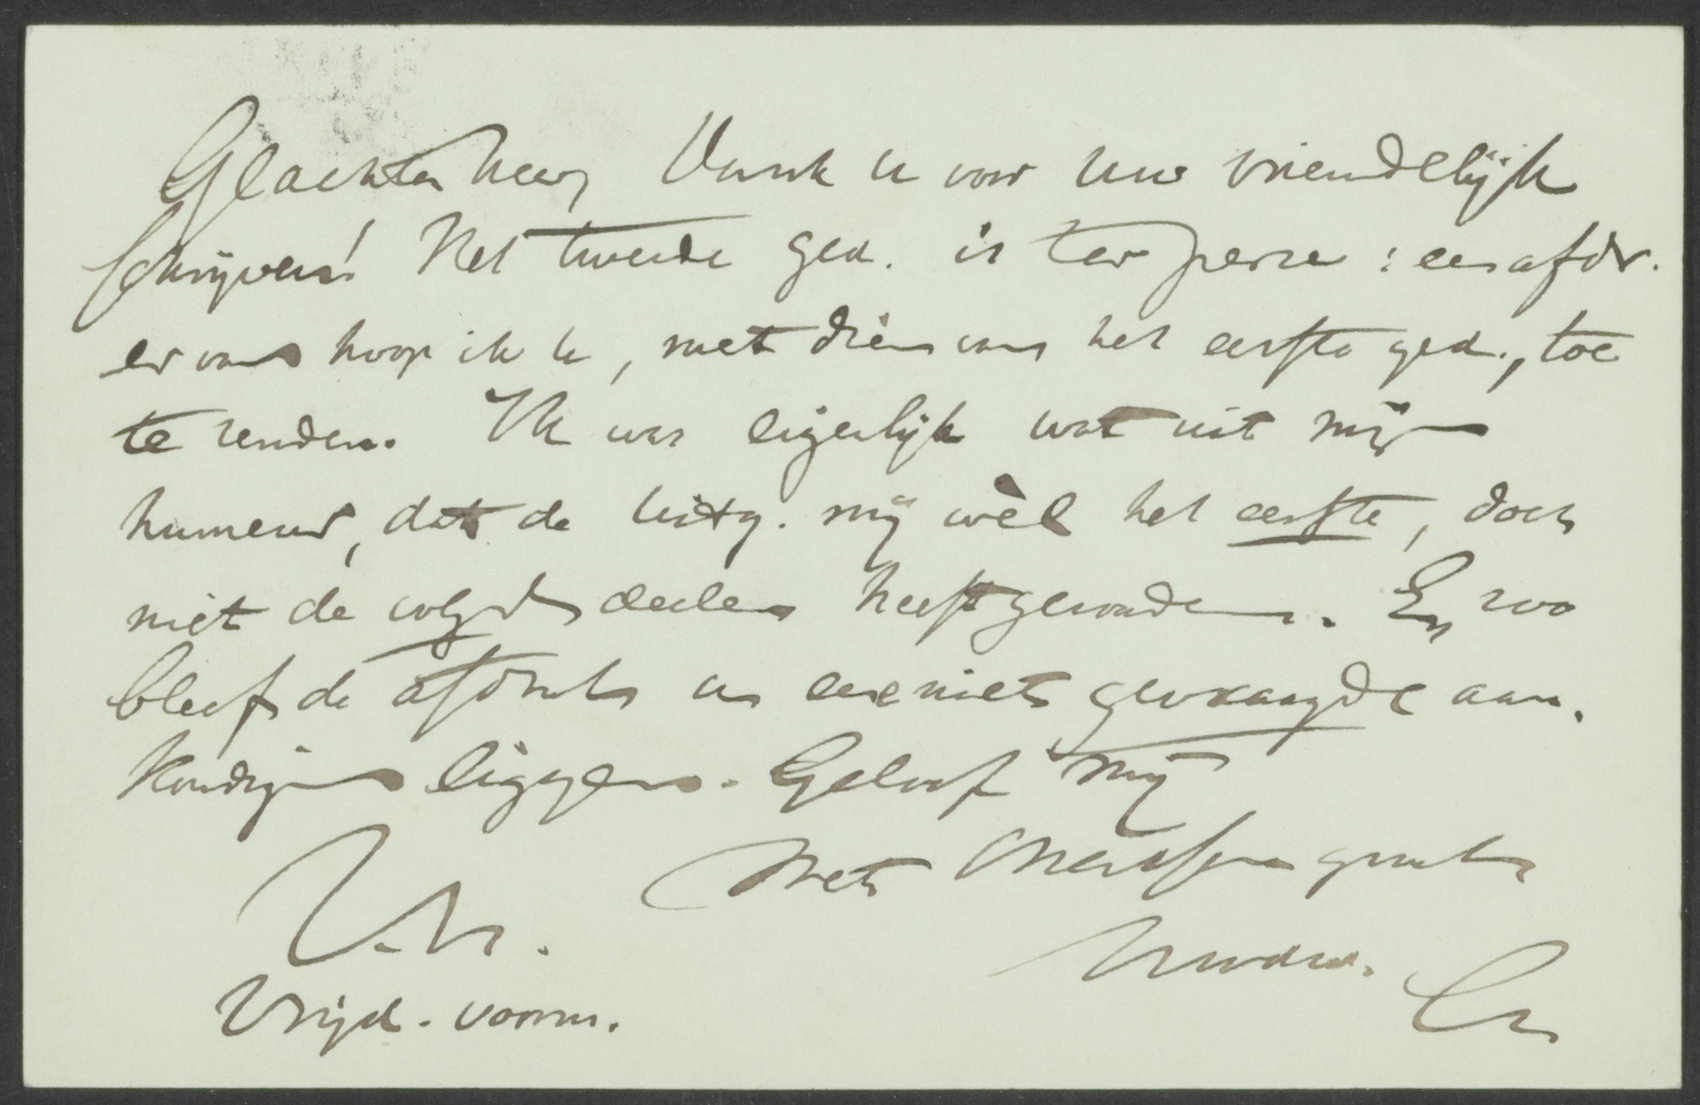 Geachte Heer, Dank u voor uw vriendelijk
schrijven! Het tweede ged. is ter perse: een afdr.
ervan hoop ik u, met dien van het eerste ged., toe
te zenden. Ik was eigenlijk wat uit mijn
humeur, dat de uitg. mij wèl het eerste, doch
niet de volgde deelen heeft gezonden. En zoo
bleef de afdruk en eene niet gevraagde aan-
kondiging liggen. Geloof mij
Met groet
Uwdw.
Vrijd. vorm.